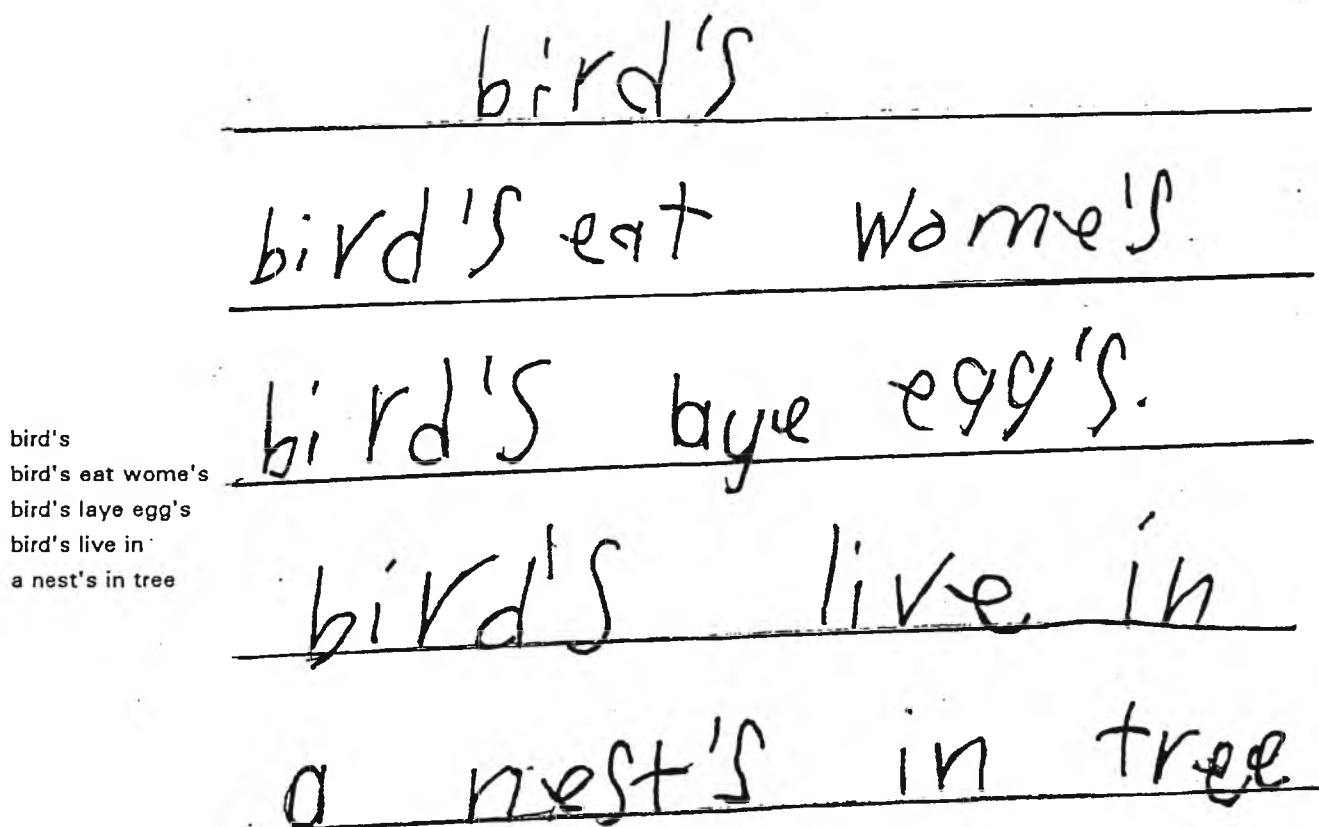 bird's
bird's eat wome's.
bird's laye egg's.
bird's live in
a nest's in tree
bird's
bird's eat wome's
bird's laye egg's
bird's live in
a nest's in tree